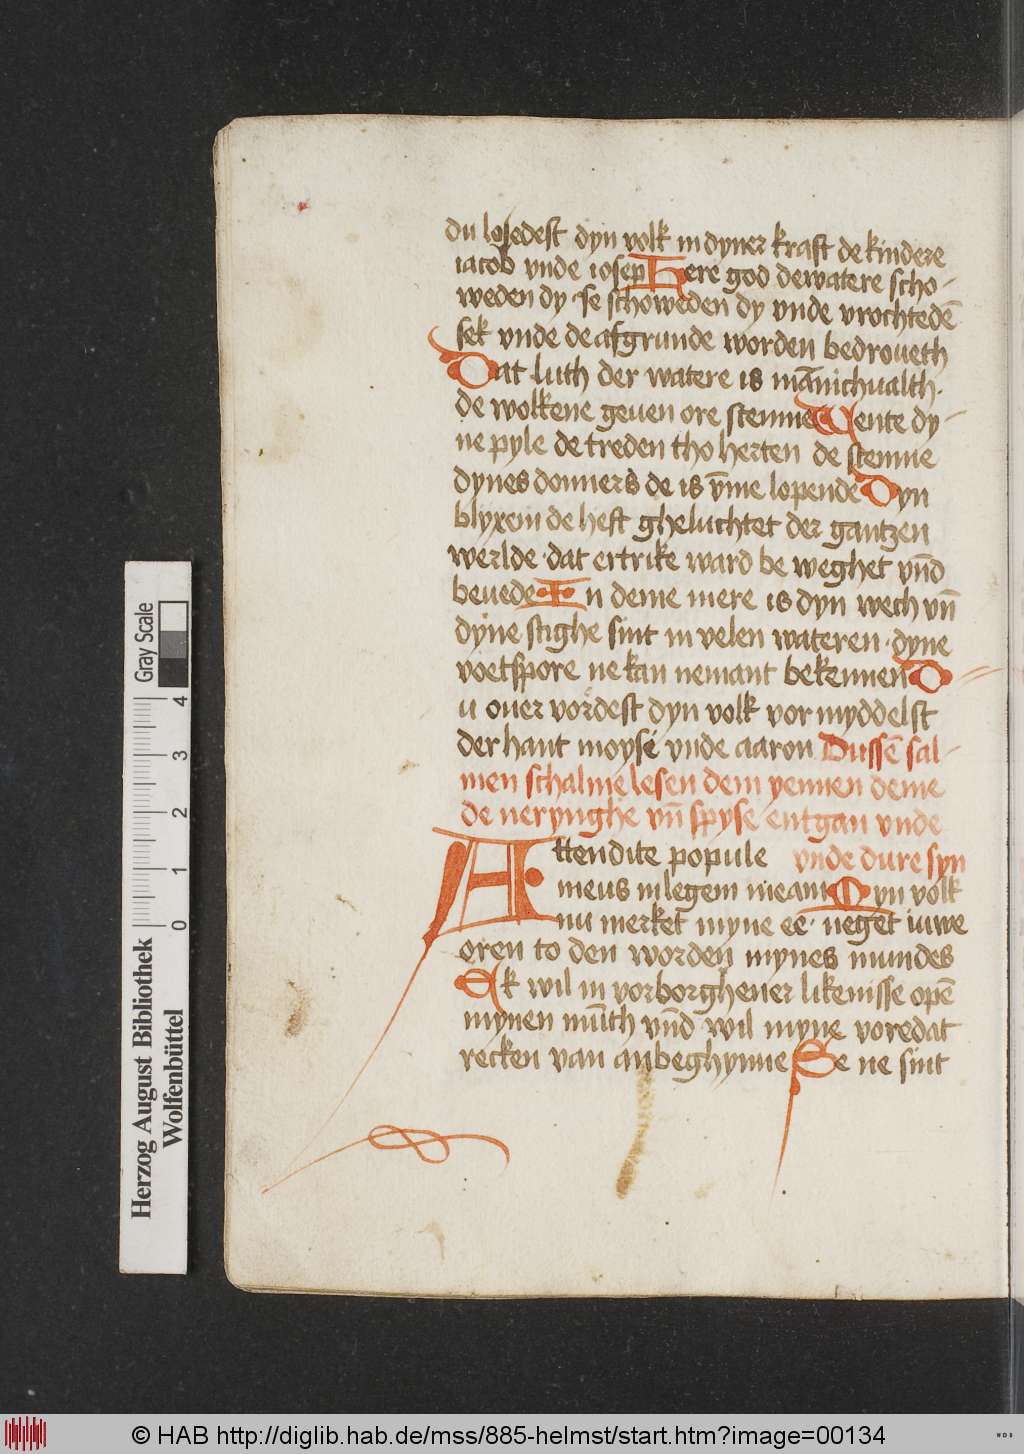 du losedest dyn volk in dyner kraft de kindere
iacob vnde iosep Here god de watere scho-
weden dy · se schoweden dy vnde vrochtedē
sek vnde de afgrunde worden bedroueth
Dat luth der watere is mānichualth·
de wolkene geuen ore stemme Wente dy-
ne pyle de treden tho herten de stemme
dynes donners de is v̄me lopende Dyn
blyxem de heft gheluchtet der gantzen
werlde · dat ertrike ward be weghet vn̄d
beuede · In deme mere is dyn wech vn̄
dyne stighe sint in velen wateren · dyne
voetspore ne kan nemant bekennen D
u ouer vordest dyn volk vor myddelst
der hant moysé vnde aaron Dussē sal-
men schalme lesen dem yennen deme
de nerynghe vn̄ spyse entgan vnde
Attendite popule vnde dure syn
meus in legem meam Myn volk
nu merket myne eē· neget iuwe
oren to den worden mynes mundes
Ik wil in vorborghener likenisse opē
mynen mūth vn̄d wil myne voredat
recken van anbeghynne Se ne sint
Herzog August Bibliothek
Wolfenbüttel
0 1 2 3 4
Gray Scale
© HAB http://diglib.hab.de/mss/885-helmst/start.htm?image=00134
WDB